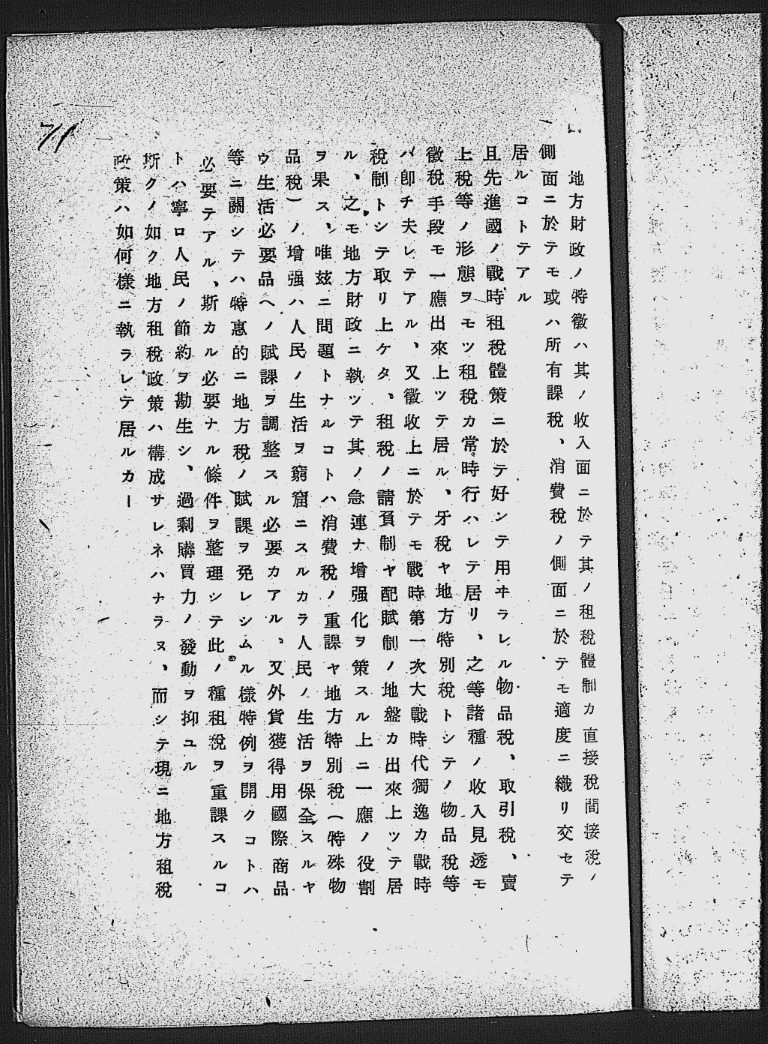 71
地方財政ノ特徵ハ其ノ收入面ニ於テ其ノ租稅體制カ直接稅間接稅ノ
側面ニ於テモ或ハ所有課稅、消費稅ノ側面ニ於テモ適度ニ織リ交セテ
居ルコトテアル
且先進國ノ戰時租稅體策ニ於テ好ンテ用ヰラレル物品稅、取引稅、賣
上稅等ノ形態ヲモツ租稅カ常時行ハレテ居リ、之等諸種ノ收入見透モ
徵稅手段モ一應出來上ツテ居ル、牙稅ヤ地方特別稅トシテノ物品稅等
ハ卽チ夫レテアル、又徵收上ニ於テモ戰時第一次大戰時代獨逸カ戰時
稅制トシテ取リ上ケタ、租稅ノ請負制ヤ配賦制ノ地盤カ出來上ツテ居
ル、之モ地方財政ニ執ツテ其ノ急速ナ增强化ヲ策スル上ニ一應ノ役割
ヲ果ス、唯玆ニ問題トナルコトハ消費稅ノ重課ヤ地方特別稅(特殊物
品稅)ノ增强ハ人民ノ生活ヲ窮窟ニスルカラ人民ノ生活ヲ保全スルヤ
ウ生活必要品ヘノ賦課ヲ調整スル必要カアル、又外貨獲得用國際商品
等ニ關シテハ特惠的ニ地方稅ノ賦課ヲ免レシムル樣特例ヲ開クコトハ
必要テアル、斯カル必要ナル條件ヲ整理シテ此ノ種租稅ヲ重課スルコ
トハ寧ロ人民ノ節約ヲ勘生シ、過剩購買力ノ發動ヲ抑ユル
斯クノ如ク地方租稅政策ハ構成サレネハナラヌ、而シテ現ニ地方租稅
政策ハ如何樣ニ執ラレテ居ルカー